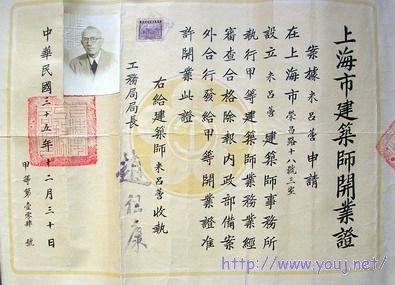 上海市建築師開業證
案據 米呂營 申請
在上海市 榮昌路十八號三室
設立 米呂營 建築師事務所
執行甲等建築師業務業經
審查合格除報內政部備案
外合行發給甲等開業證准
許開業此證
右給建築師 米呂營 收執
工務局局長 趙祖康
中華民國三十五年十二月三十日
甲等第壹零肆號
http://www.youj.net/